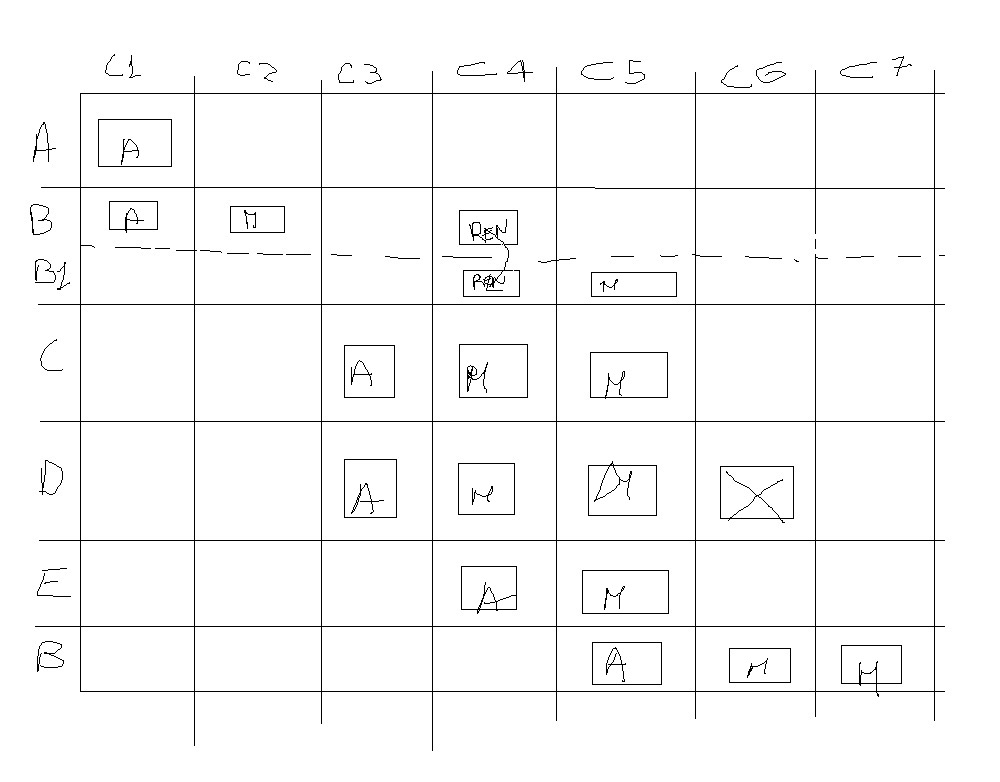 C1 C2 C3 C4 C5 C6 C7
A A
B A M REN
B1 REN M
C A M M
D A M M
E A M
B A M M